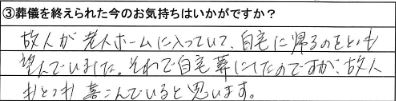 ③葬儀を終えられた今のお気持ちはいかがですか？
故人が老人ホームに入っていて、自宅に帰るのをとても
望んでいました。それで自宅葬にしたのですが、故人
もとても喜こんでいると思います。